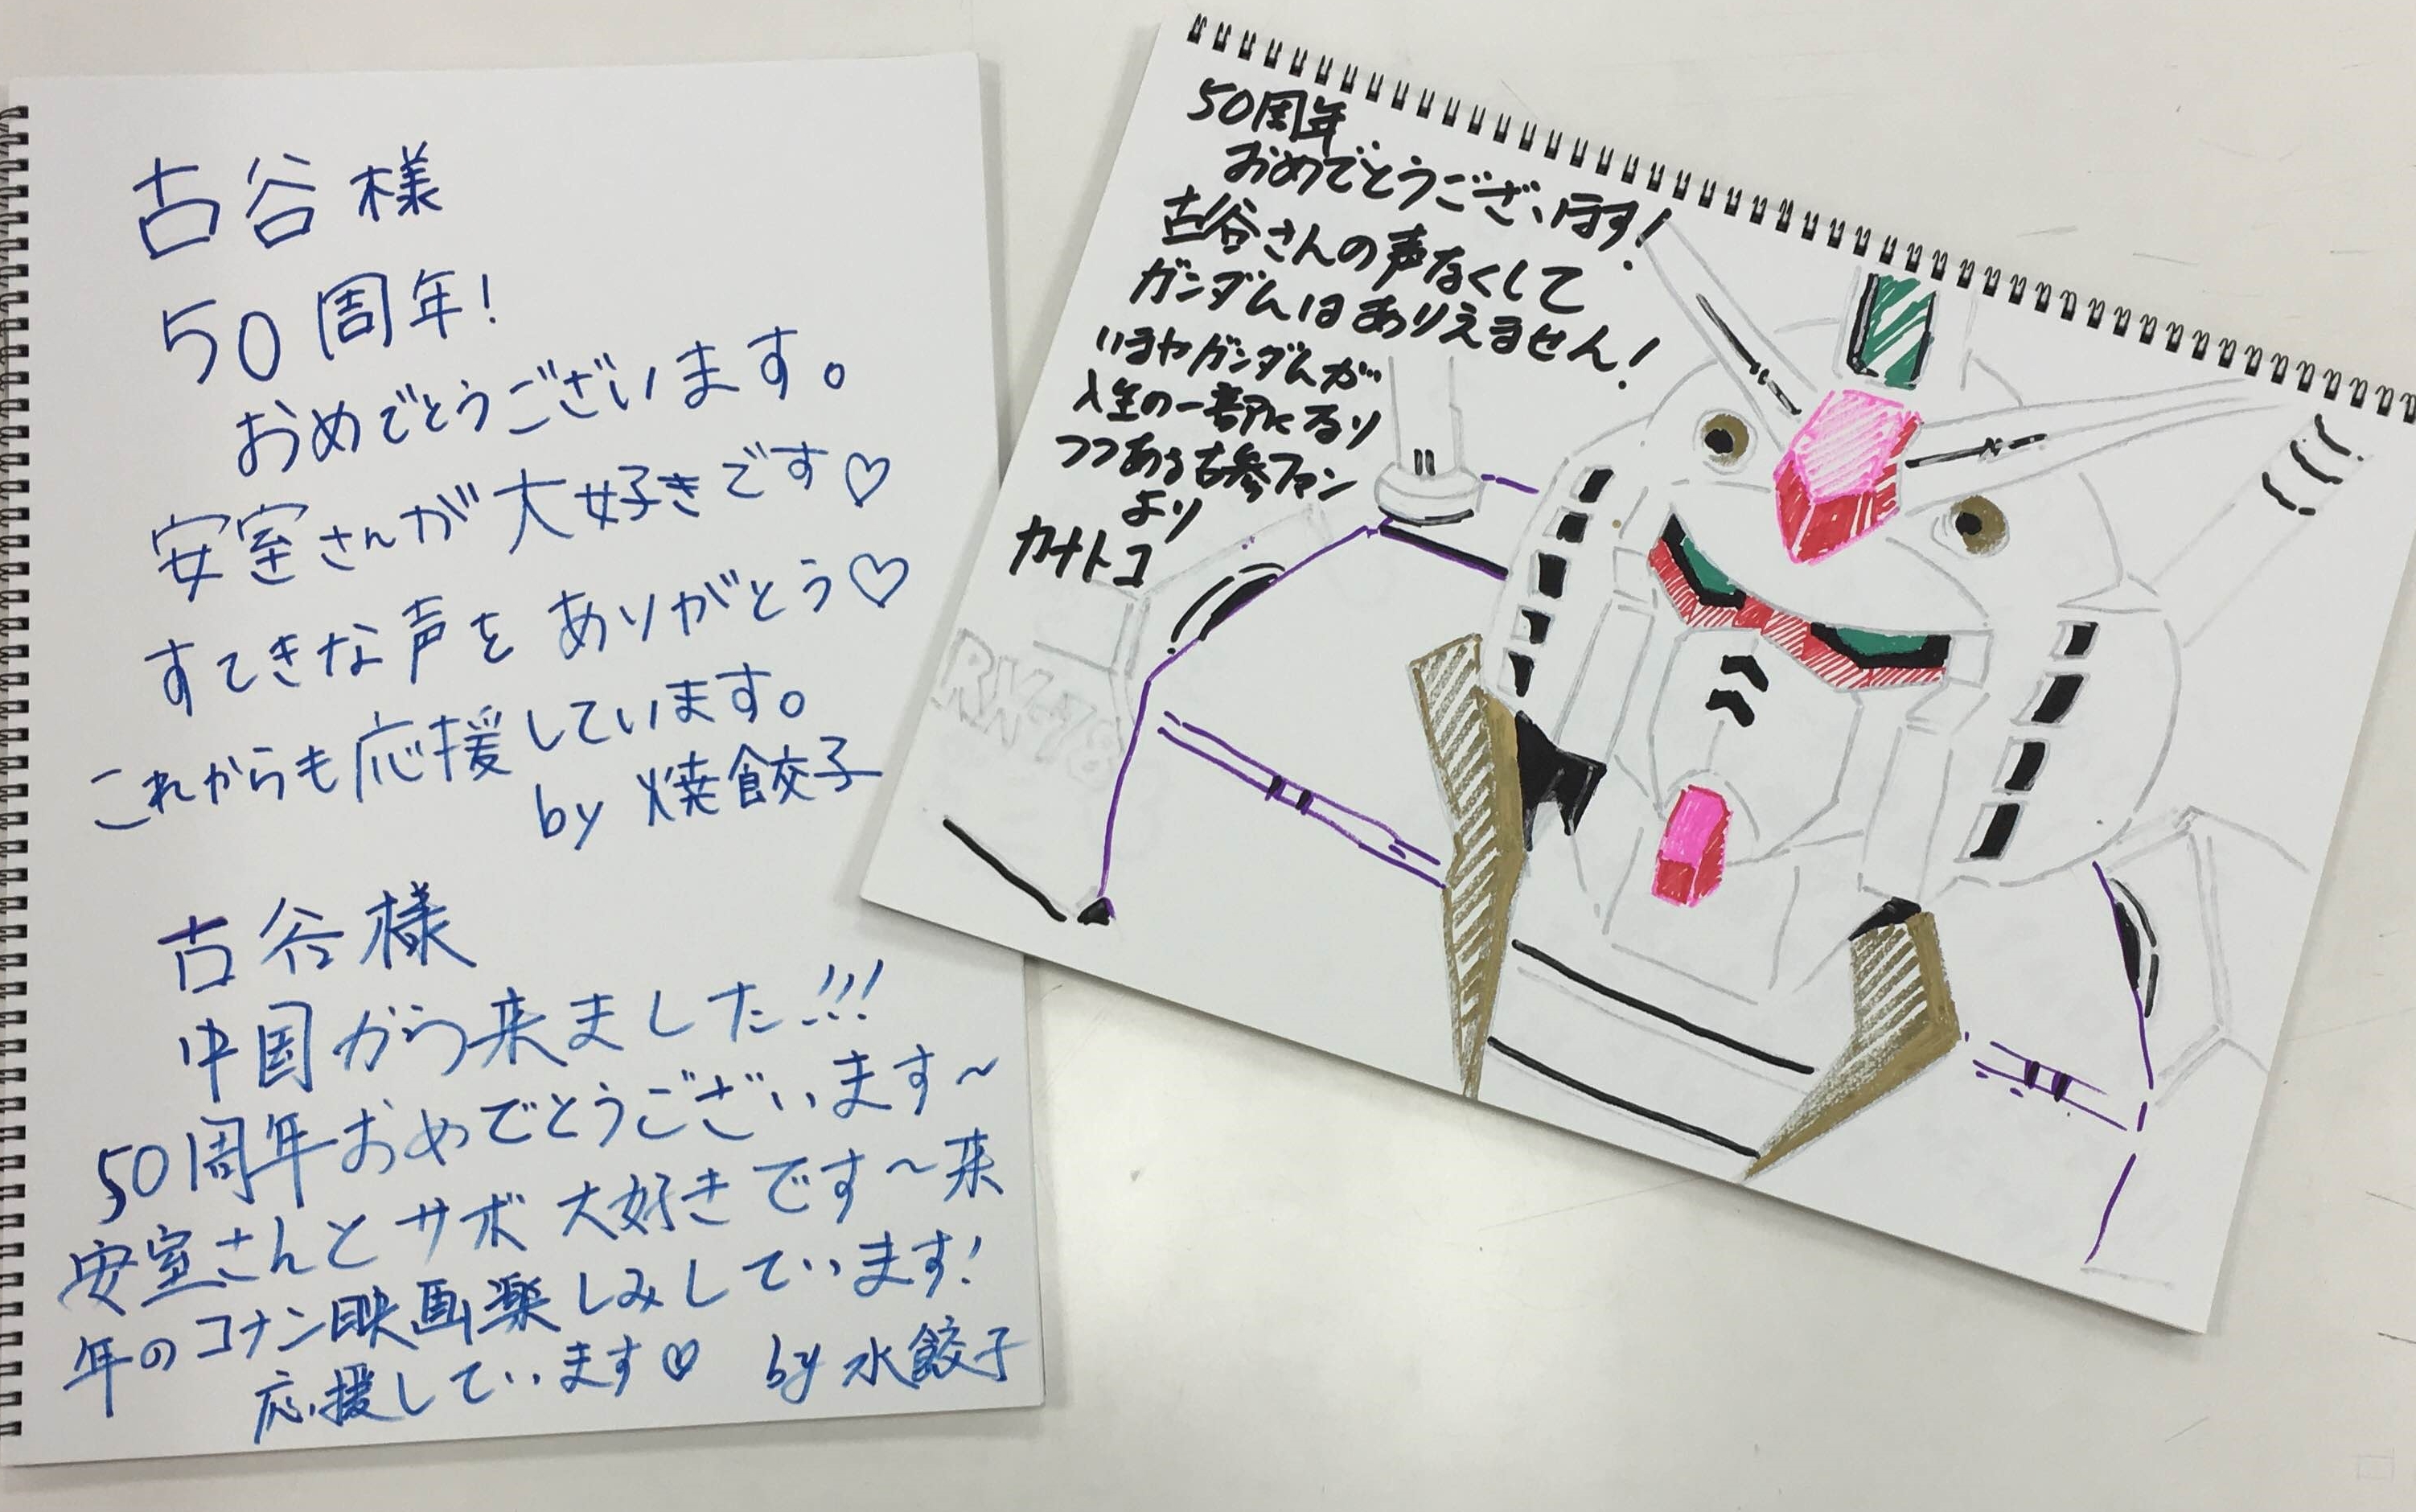 古谷様
50周年!
おめでとうございます。
安室さんが大好きです♡
すてきな声をありがとう♡
これからも応援しています。
by 焼餃子
古谷様
中国から来ました!!!
50周年おめでとうございます～
安室さんとサボ大好きです～来
年のコナン映画楽しみしています!
応援しています♡ by 水餃子
50周年
おめでとうございます!
古谷さんの声なくして
ガンダムはありえません!
いまやガンダムが
人生の一部になり
つつある古参ファン
より
カナトコ
RX-78